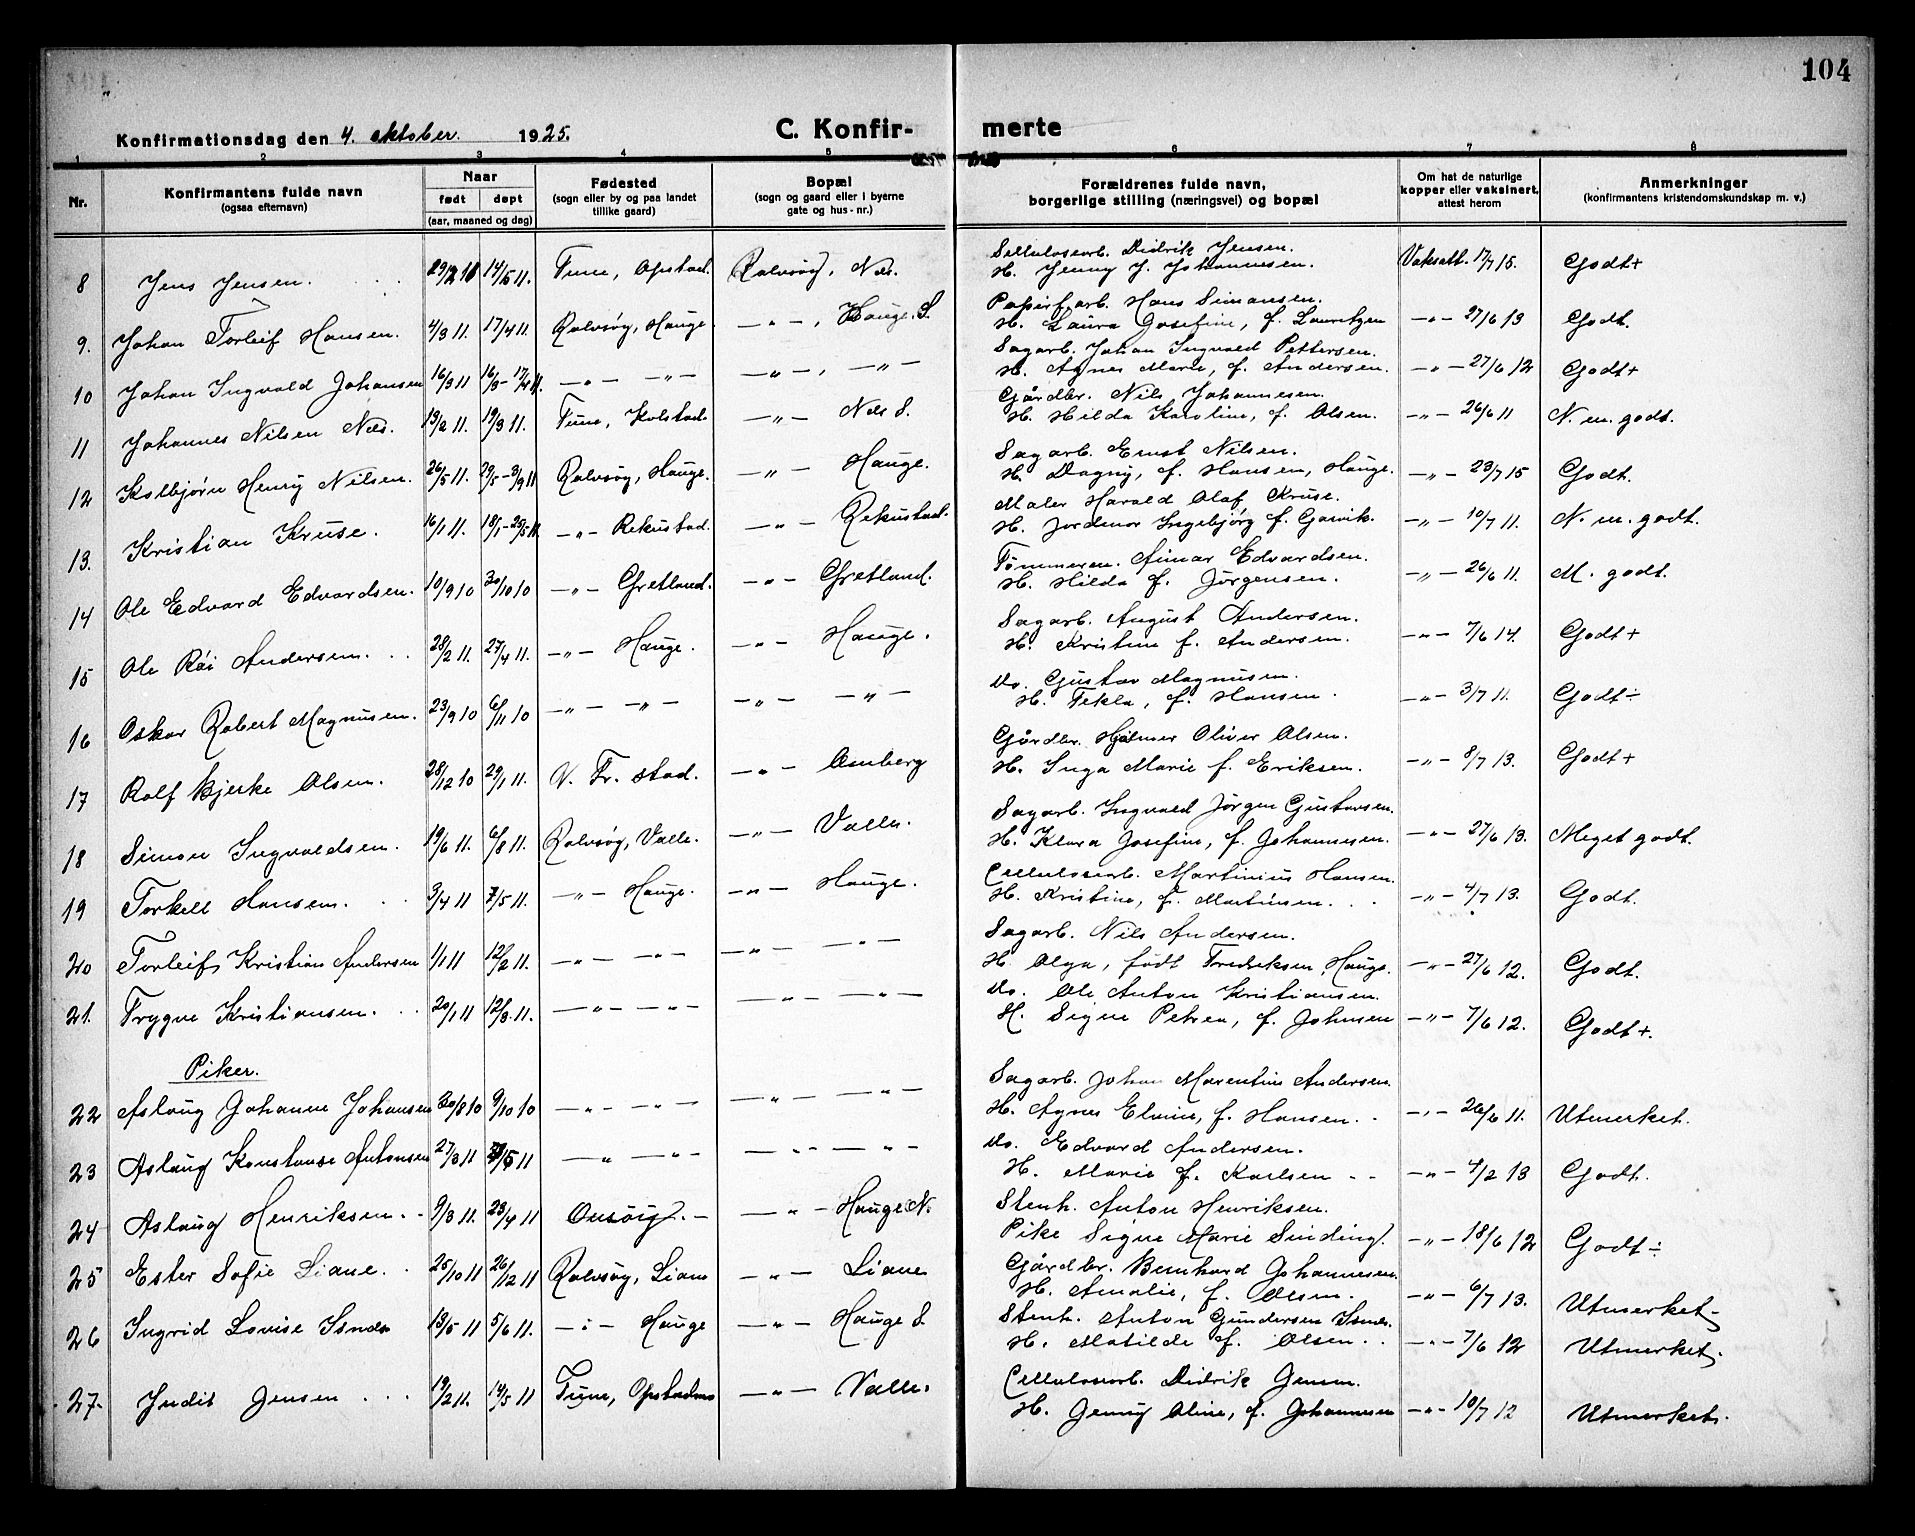 104
Konfirmationsdag den 4. oktober. 1925.
C. Konfir- merte
1 2 3 4 5 6 7 8
Nr. Konfirmantens fulde navn (ogsaa efternavn) Naar født døpt (aar, maaned og dag) Fødested (sogn eller by og paa landet tillike gaard) Bopæl (sogn og gaard eller i byerne gate og hus-nr.) Forældrenes fulde navn, borgerlige stilling (næringsvei) og bopæl Om hat de naturlige kopper eller vaksinert, attest herom Anmerkninger (konfirmantens kristendomskundskap m. v.)
8 Jens Jensen. 14/5 11. Tune, Opstad. Rolvsøy, Nes. Sellulosearb. Didrik Jensen. H. Jenny J. Johannesen. Vaksatt. 17/7 15. Godt+
9. Johan Torleif Hansen. 4/3 11. 17/4 11. Rolvsøy, Hauge. —„—, Hauge. S. Papirf.arb. Hans Simensen. H. Laura Josefine, f. Lauritzen —„— 27/6 13 Godt.
10 Johan Ingvald Johansen 16/3 11 16/3-17/4 11. —„— —„— —„—, —„— Sagarb. Johan Ingvald Pettersen. H. Agnes Marie, f. Andersen. —„— 27/6 12 Godt+
11 Johannes Nilsen Nes. 13/2 11. 19/3 11. Tune, Kolstad. —„— Nes S. Gårdbr. Nils Johannesen. H. Hilda Karoline, f. Olsen. —„— 26/6 11 N. m. godt.
12 Kolbjørn Henry Nilsen. 26/5 11. 29/5-3/9 11 Rolvsøy, Hauge. —„— Hauge. Sagarb. Ernst Nilsen. H. Dagny, f. Hansen, Hauge. —„— 23/7 15 Godt.
13. Kristian Kruse. 16/1 11. 18/1-25/5 11 —„— Rekustad. —„— Rekustad. Maler Harald Olaf Kruse. H. Jordmor Ingebjørg f. Garvik. —„— 10/7 11. N. m. godt.
14 Ole Edvard Edvardsen. 10/9 10 30/10 10 —„— Gretland. —„— Gretland. Tømmerm. Aimar Edvardsen. H. Hilda f. Jørgensen. —„— 26/6 11. M. godt.
15 Ole Rói Andersen. 28/2 11. 27/4 11. —„— Hauge. —„— Hauge. Sagarb. August Andersen. H. Kristine f. Andersen. —„— 7/6 14. Godt+
16 Oskar Robert Magnusen. 23/9 10 6/11 10 —„— —„— —„— —„— Do. Gustav Magnusen. H. Tekla, f. Hansen. —„— 3/7 11. Godt÷
17 Rolf Bjerke Olsen. 28/12 10 29/1 11. V. Fr.stad. —„— Omberg Gårdbr. Hilmer Oliver Olsen. H. Inga Marie f. Eriksen. —„— 8/7 13. Godt+
18 Simon Ingvaldsen. 19/6 11. 6/8 11. Rolvsøy, Valle. —„— Valle. Sagarb. Ingvald Jørgen Gustavsen. H. Klara Josefine, f. Johannesen. —„— 27/6 13. Meget godt.
19 Torkell Hansen. 3/4 11 7/5 11. —„— Hauge. —„— Hauge. Cellulosearb. Martinius Hansen. H. Kristine, f. Martinsen. —„— 4/7 13. Godt.
20 Torleif Kristian Andersen 1/1 11 12/2 11. —„— —„— —„— —„— Sagarb. Nils Andersen. H. Olga, født Fredriksen, Hauge. —„— 27/6 12. Godt.
21. Trygve Kristiansen. 20/1 11 12/3 11. —„— —„— —„— —„— Do. Ole Anton Kristiansen. H. Signe Petrea, f. Johnsen —„— 7/6 12. Godt+.
Piker.
22 Aslaug Johanne Johansen 30/8 10 9/10 10 —„— —„— —„— —„— Sagarb. Johan Marentius Andersen. H. Agnes Elvine, f. Hansen. —„— 26/6 11. Utmerket.
23 Aslaug Konstanse Antonsen 27/3 11 —„— —„— —„— —„— Do. Edvard Andersen. H. Marie f. Karlsen —„— 4/2 13 Godt.
24 Aslaug Henriksen. 9/3 11. 23/4 11 Onsøy. —„— Hauge N. Stenh. Anton Henriksen. Pike Signe Marie Sinding. —„— 18/6 12 Godt÷
25 Ester Sofie Liane. 25/10 11 26/12 11 Rolvsøy, Liane —„— Liane Gårdbr. Bernhard Johannesen. H. Amalie, f. Olsen. —„— 6/7 13. Utmerket-
26 Ingrid Lovise 13/5 11 5/6 11. —„— Hauge —„— Hauge S. Stenh. Anton Gundersen H. Matilde f. Olsen. —„— 7/6 12 Utmerket.
27. Judit Jensen 19/2 11. 14/5 11 Tune, —„— Valle. Cellulosearb. Didrik Jensen. H. Jenny Oline, f. Johannesen —„— 10/7 12 Utmerket.